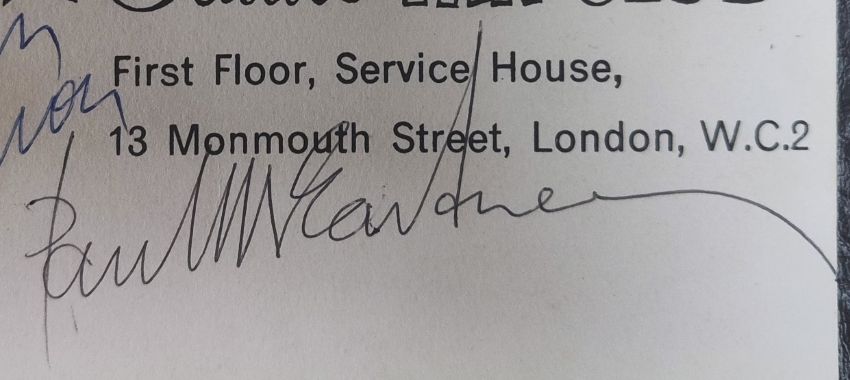 First Floor, Service House,
13 Monmouth Street, London, W.C.2
Paul McCartney